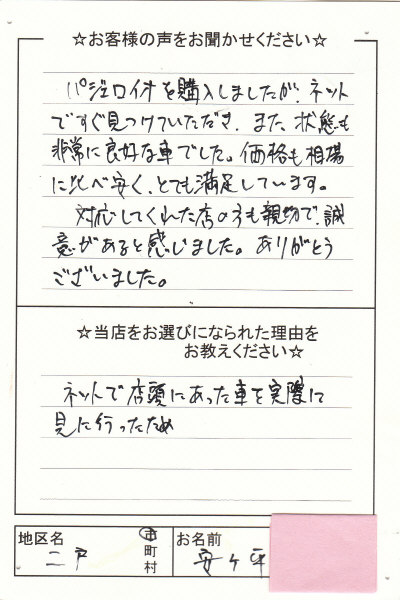 ☆お客様の声をお聞かせください☆
パジェロイオを購入しましたが、ネット
ですぐ見つけていただき、また、状態も
非常に良好な車でした。価格も相場
に比べ安く、とても満足しています。
対応してくれた店の方も親切で、誠
意があると感じました。ありがとう
ございました。
☆当店をお選びになられた理由を
お教えください☆
ネットで店頭にあった車を実際に
見に行ったため
地区名
二戸
市
町
村
お名前
安ヶ平